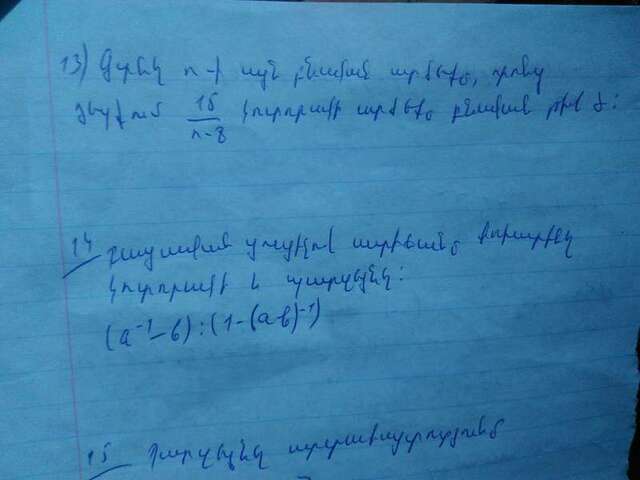 13) Գտնել n-ի այն բնական արժեքը, որոնց
դեպքում 15/(n-8) կոտորակի արժեքը բնական թիվ է:
14 բացասական ցուցիչով աստիճանը փոխարինել
կոտորակի և պարզեցնել:
(a⁻¹-b):(1-(a-b)⁻¹)
15 Պարզեցնել արտահայտությունը